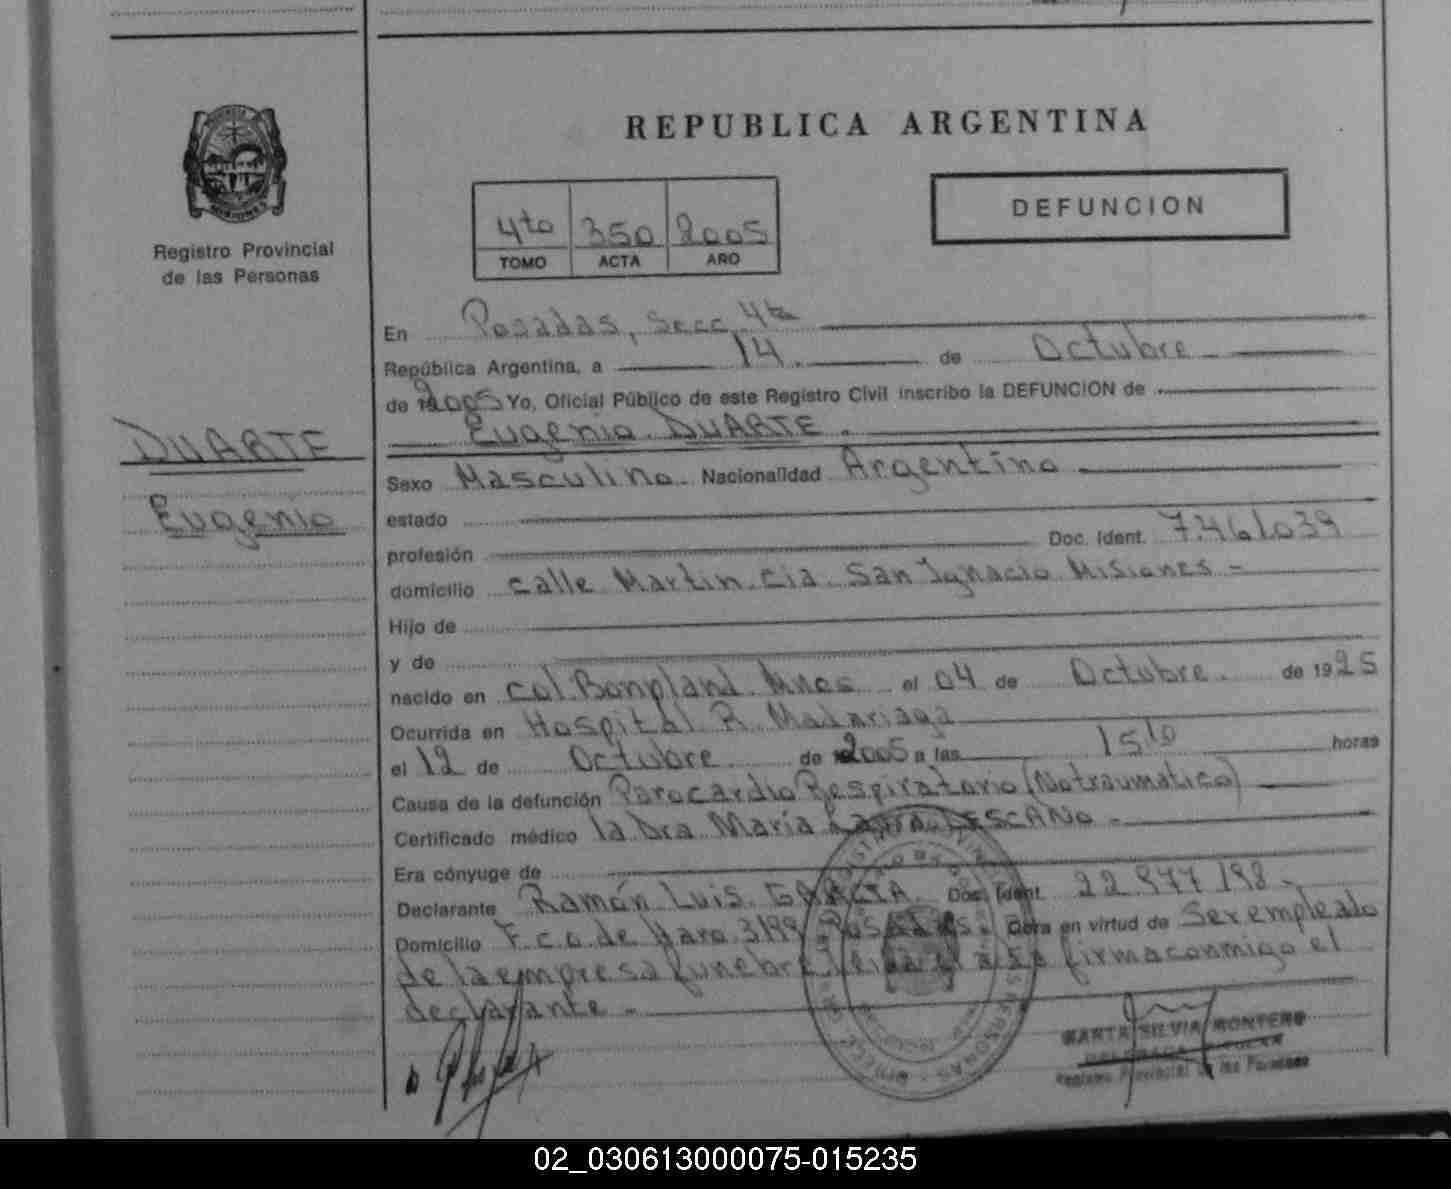 REPUBLICA ARGENTINA
DEFUNCION
4to 350 2005
TOMO ACTA AÑO
Registro Provincial
de las Personas
DUARTE
Eugenio
En Posadas, Secc. 4ta
República Argentina, a 14 de Octubre
de 2005 Yo, Oficial Público de este Registro Civil inscribo la DEFUNCION de
Eugenio DUARTE.
Sexo Masculino. Nacionalidad Argentino
estado
profesión Doc. Ident. 7.461.039
domicilio calle Martin cia. San Ignacio Misiones -
Hijo de
y de
nacido en Col. Bonpland. Mnes el 04 de Octubre. de 1925
Ocurrida en Hospital R. Madariaga
el 12 de Octubre. de 2005 a las 15 10 horas
Causa de la defunción Parocardio Respiratorio (No traumatico)
Certificado médico la Dra. María LESCANO -
Era cónyuge de
Declarante Ramón Luis GARCIA. Doc. Ident. 22.977.198 -
Domicilio Fco. de Haro 3199 Posadas. Obra en virtud de Ser empleado
de la empresa funebre firma conmigo el
declarante -
MARTA SILVIA MONTERO
Registro Provincial de las Personas
02_030613000075-015235